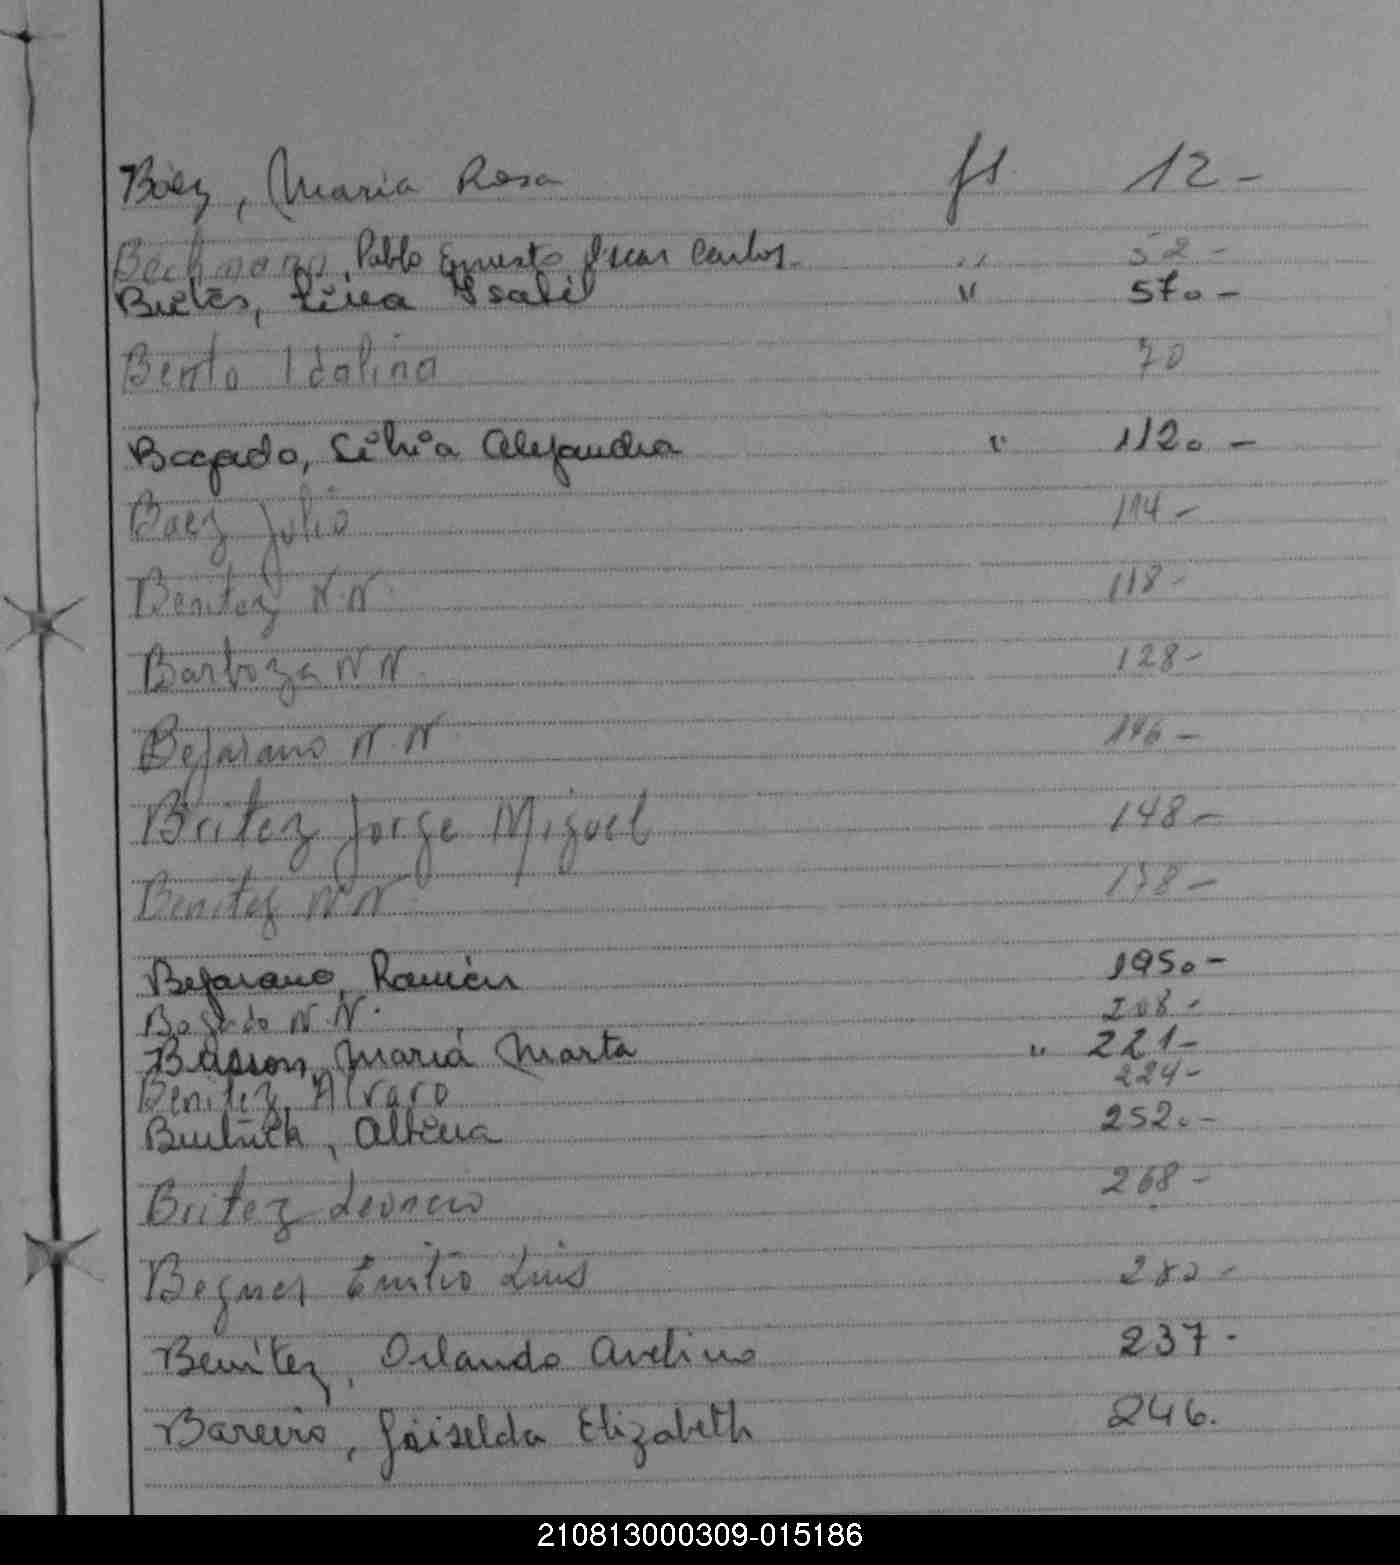 Báez, Maria Rosa fs. 12-
Bechmann, Pablo Ernesto Oscar Carlos. " 52-
Isabel " 57.-
Bento Idalina 70
Bogado, Silvia Alejandra " 112.-
Baez Julio 114-
Benitez N.N. 118-
Barboza N N. 128-
Bejarano N.N. 146-
Britez Jorge Miguel 148-
Benitez N N. 158-
Bejarano, Ramón 195.-
Bogado N.N. 208-
Basson, María Marta " 221-
Benitez, Alvaro 224-
252.-
Britez 268-
Emilio Luis
Benítez, Orlando Avelino 237-
Bareiro, Griselda Elizabeth 246.
210813000309-015186